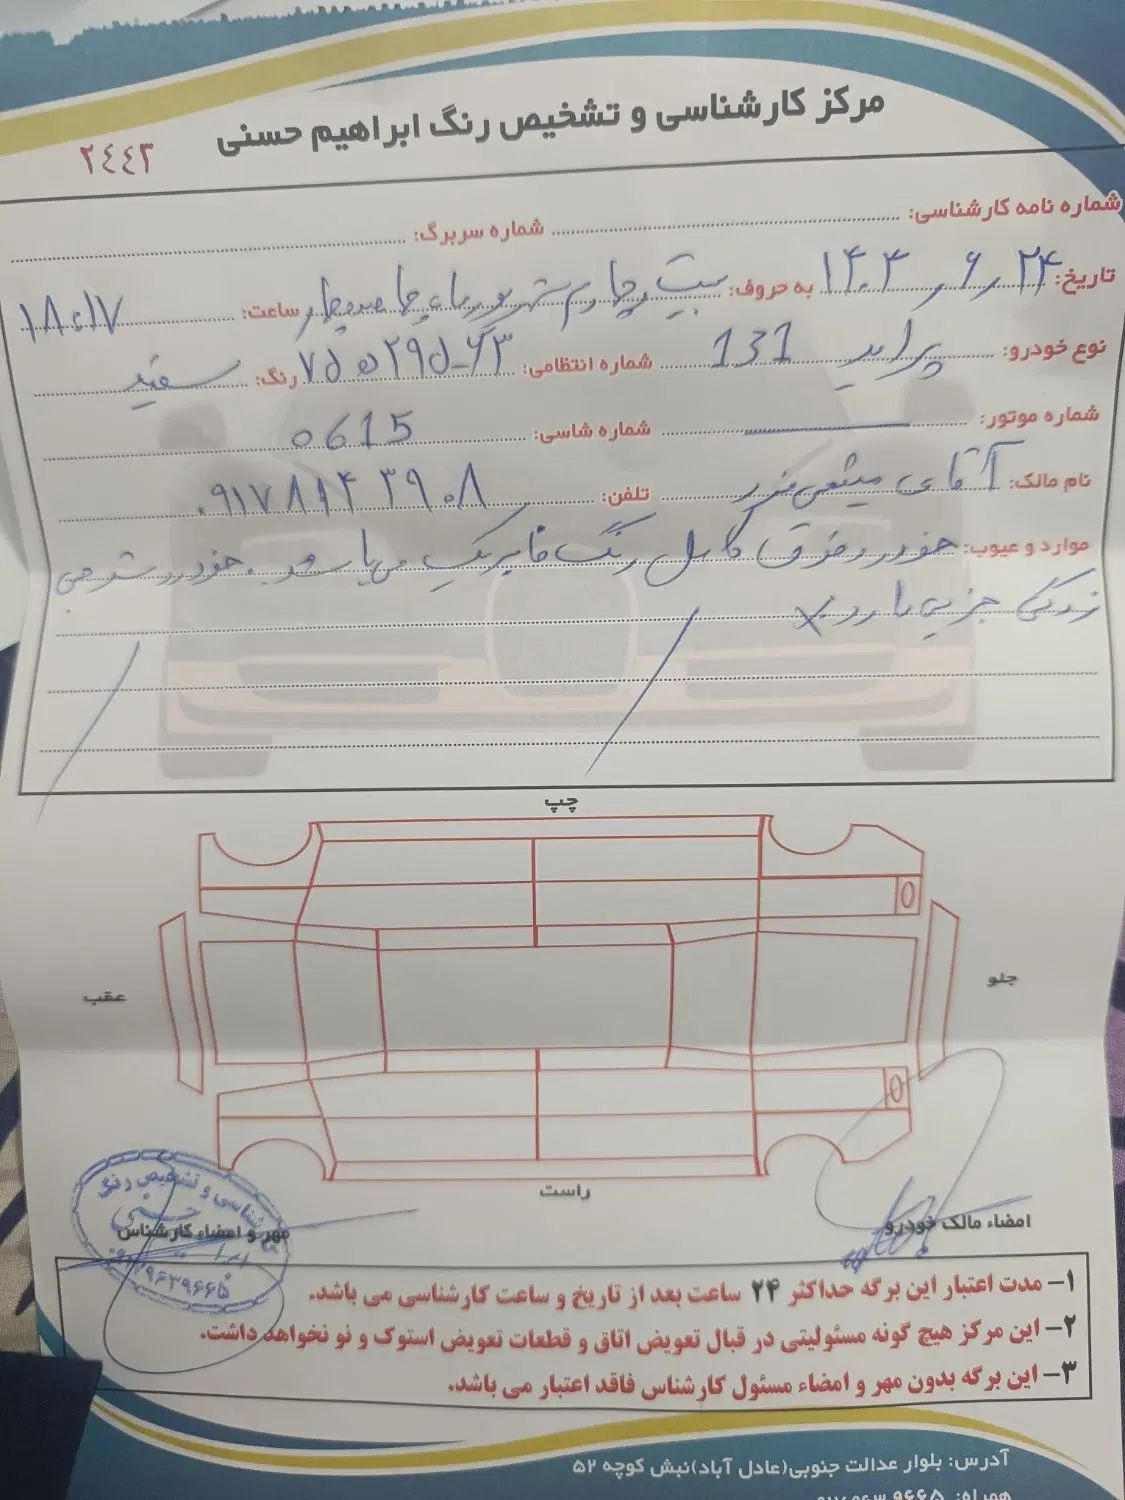 مرکز کارشناسی و تشخیص رنگ ابراهیم حسنی
۲٤٤۳
شماره نامه کارشناسی: شماره سربرگ:
تاریخ: ۱۴۰۴/۶/۲۴ به حروف: بیست و چهارم شهریور ماه چهارصد و چهار ساعت: ۱۸:۱۷
نوع خودرو: پراید 131 شماره انتظامی: ۶۳-۷۵ه۲۹۵ رنگ: سفید
شماره موتور: شماره شاسی: 0615
نام مالک: آقای تلفن: ۰۹۱۷۸۱۴۳۹۰۸
موارد و عیوب: خودرو فوق کامل رنگ فابریک می باشد. خودرو
زدگی جزیی دارد
چپ
جلو
عقب
راست
امضاء مالک خودرو
مهر و امضاء کارشناس
کارشناسی و تشخیص رنگ
حسنی
۱- مدت اعتبار این برگه حداکثر ۲۴ ساعت بعد از تاریخ و ساعت کارشناسی می باشد.
۲- این مرکز هیچ گونه مسئولیتی در قبال تعویض اتاق و قطعات تعویض استوک و نو نخواهد داشت.
۳- این برگه بدون مهر و امضاء مسئول کارشناس فاقد اعتبار می باشد.
آدرس: بلوار عدالت جنوبی(عادل آباد)نبش کوچه ۵۲
همراه: